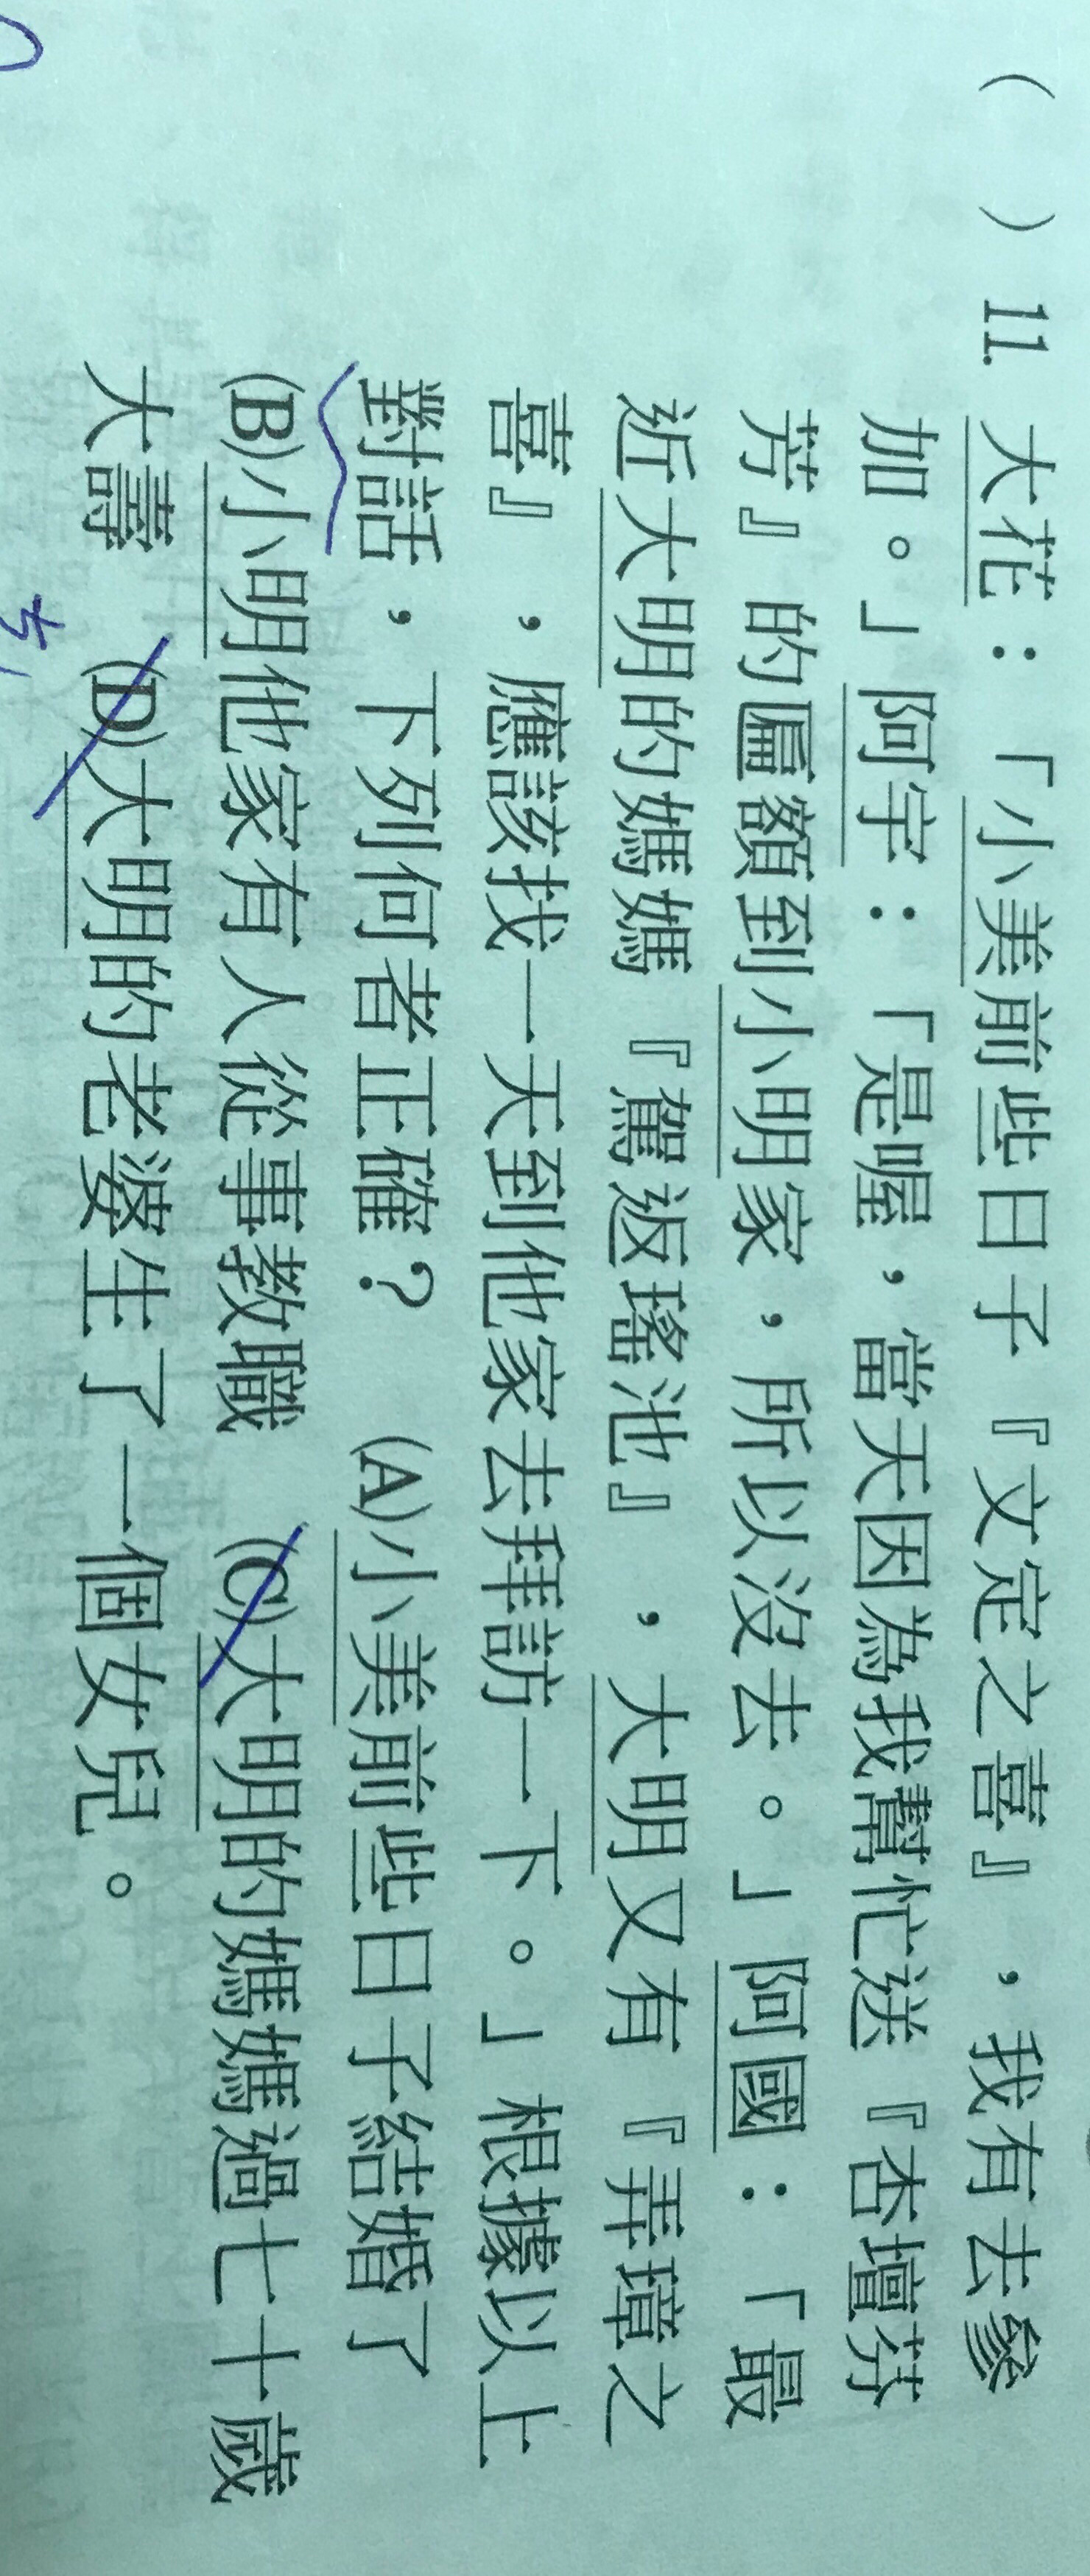 （　）11. 大花：「小美前些日子『文定之喜』，我有去參
加。」阿宇：「是喔，當天因為我幫忙送『杏壇芬
芳』的匾額到小明家，所以沒去。」阿國：「最
近大明的媽媽『駕返瑤池』，大明又有『弄璋之
喜』，應該找一天到他家去拜訪一下。」根據以上
對話，下列何者正確？　(A)小美前些日子結婚了
(B)小明他家有人從事教職　(C)大明的媽媽過七十歲
大壽　(D)大明的老婆生了一個女兒。